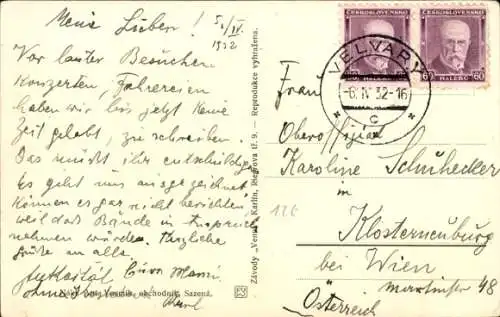 Meine Lieben! 5./IV.
1932
Vor lauter Besuchen
Konzerten, Fahrereien
haben wir bis jetzt keine
Zeit gehabt, zu schreiben.
Das müsst ihr entschuldigen
Es geht uns ausgezeichnet
können es gar nicht berichten
weil das Bände in Anspruch
nehmen würde. Herzliche
Grüße an alle
Eure Mami
obchodník, Sazená.
Závody „Venuš“, Karlín, Riegrova tř. 9. — Reprodukce vyhražena.
ČESKOSLOVENSKO
ČESKOSLOVENSKO
60 HALÉŘŮ
HALÉŘŮ 60
VELVARY
-6.IV.32-16
* C *
Frau
Oberoffizial
Karoline Schuhecker
in
Klosterneuburg
bei Wien
48
Österreich